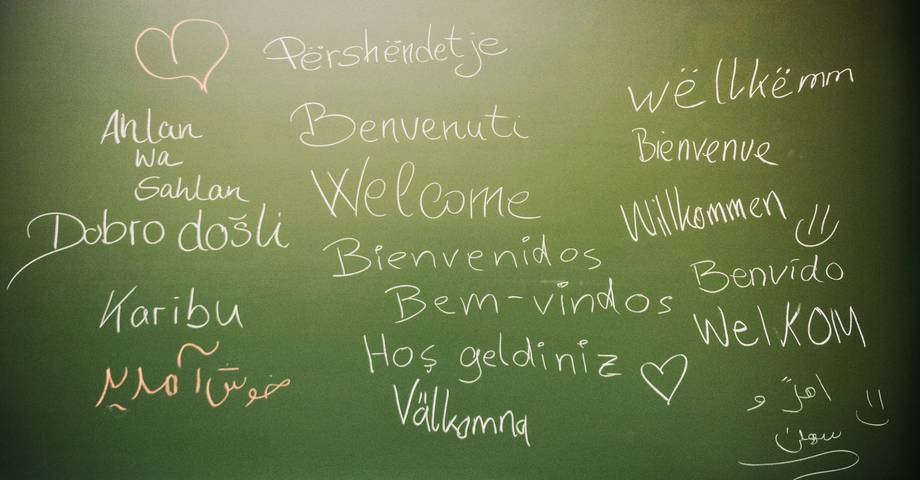 Përshëndetje
Ahlan
wa
Sahlan
Dobro došli
Karibu
خوش آمدید
Benvenuti
Welcome
Bienvenidos
Bem-vindos
Hoş geldiniz
Välkomna
wëllkëmm
Bienvenue
Willkommen
Benvído
WelKOM
اهلاً و
سهلاً